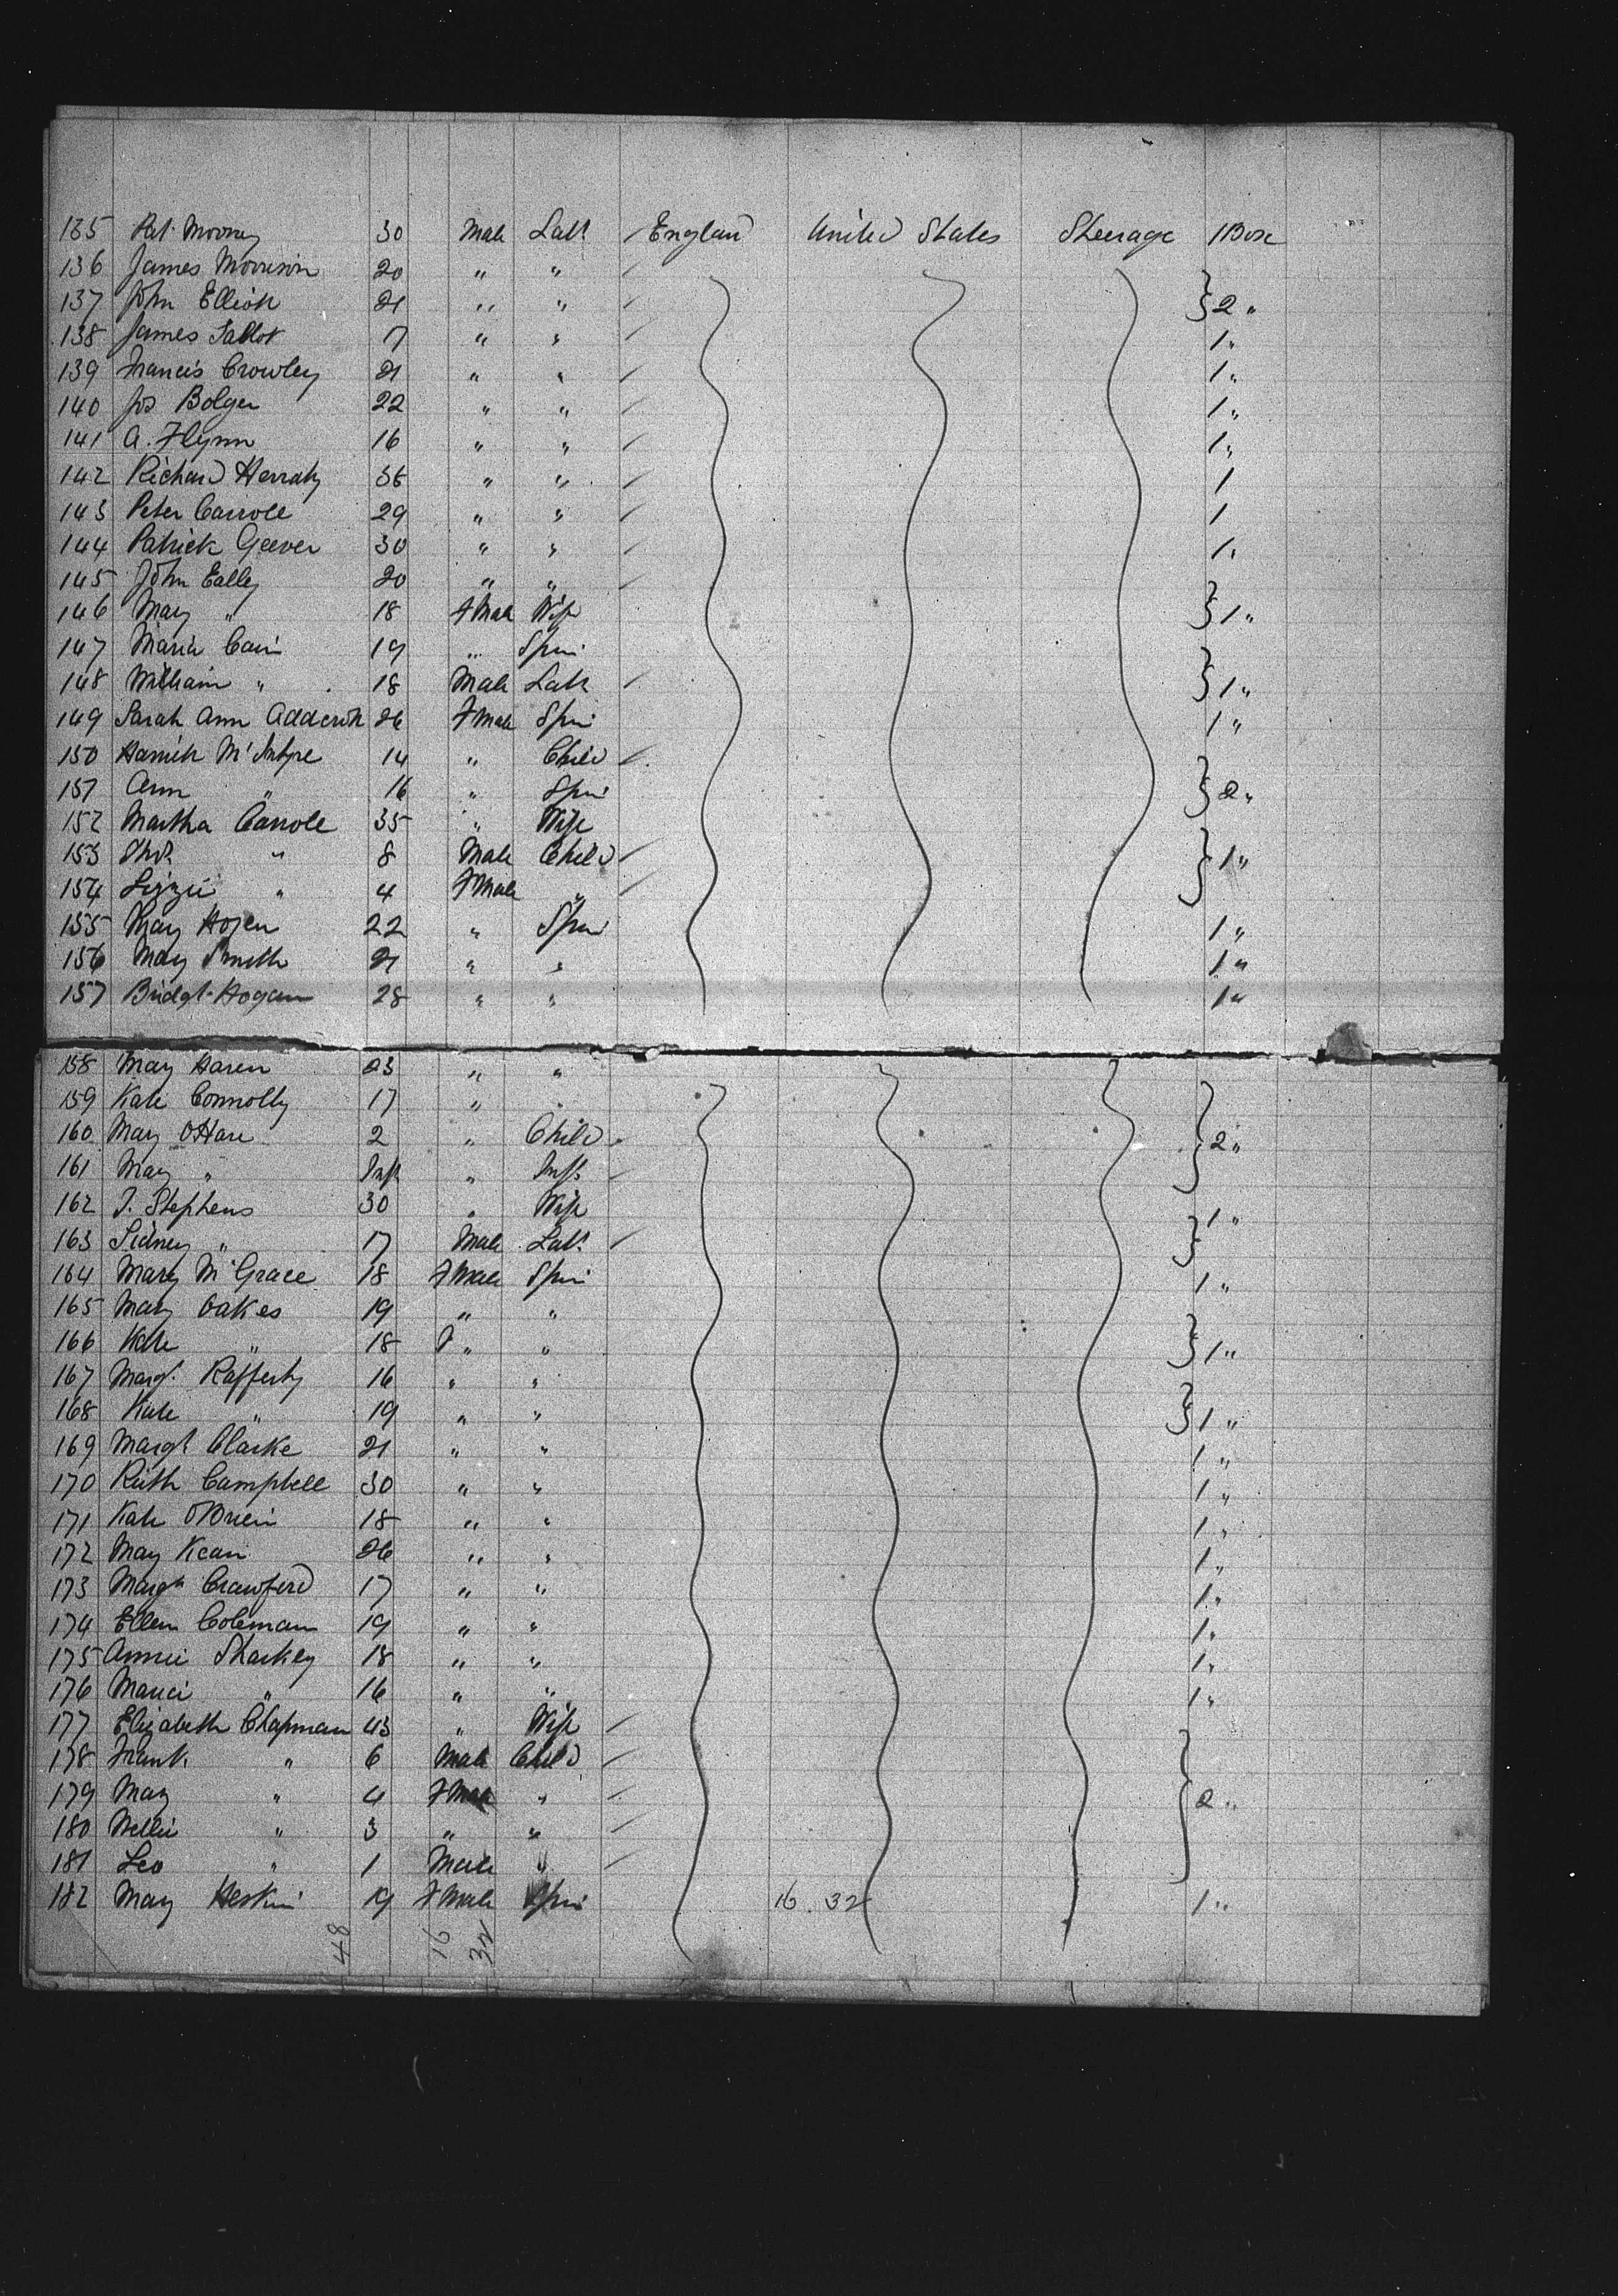 135 Pat Mooney 30 Male Labr England United States Steerage 1 Box
136 James Morrison 20 " "
137 John Elliott 21 " " } 2 "
138 James Talbot 7 " " 1 "
139 Francis Crowley 21 " " 1 "
140 Jos Bolger 22 " " 1 "
141 A. Flynn 16 " " 1 "
142 Richard 36 " " 1
143 Peter Carroll 29 " " 1
144 Patrick Geever 30 " " 1 "
145 John Ealley 20 " "
146 Mary " 18 FMale Wife } 1 "
147 Maria Cain 19 " Spin
148 William " 18 Male Labr } 1 "
149 Sarah Ann 26 FMale Spin 1 "
150 14 " Child
151 Ann " 16 " Spin } 2 "
152 Martha Carroll 35 " Wife
153 " 8 Male Child } 1 "
154 Lizzie " 4 FMale "
155 Mary Hojen 22 " Spin 1 "
156 Mary Smith 21 " " 1 "
157 Bridgt Hogan 28 " " 1 "
158 Mary Haren 23 " "
159 Kate Connolly 17 "
160 Mary OHare 2 " Child } 2 "
161 Mary " Inft " Inft
162 J. Stephens 30 " Wife
163 Sidney " 17 Male Labr } 1 "
164 Mary McGrace 18 FMale Spin 1 "
165 Mary Oakes 19 " "
166 Kate " 18 " " } 1 "
167 Margt Rafferty 16 " "
168 Kate " 19 " " } 1 "
169 Margt Clarke 21 " " 1 "
170 Ruth Campbell 30 " " 1 "
171 Kate OBrien 18 " " 1 "
172 Mary Kean 26 " " 1 "
173 Margt Crawford 17 " " 1 "
174 Ellen Coleman 19 " " 1 "
175 Annie Sharkey 18 " " 1 "
176 " 16 " " 1 "
177 Elizabeth Chapman 43 " Wife
178 Frank " 6 Male Child
179 May " 4 FMale " } 2 "
180 Nellie " 3 " "
181 Leo " 1 Male "
182 Mary 19 FMale Spin 16 . 32 1 "
48 16 32